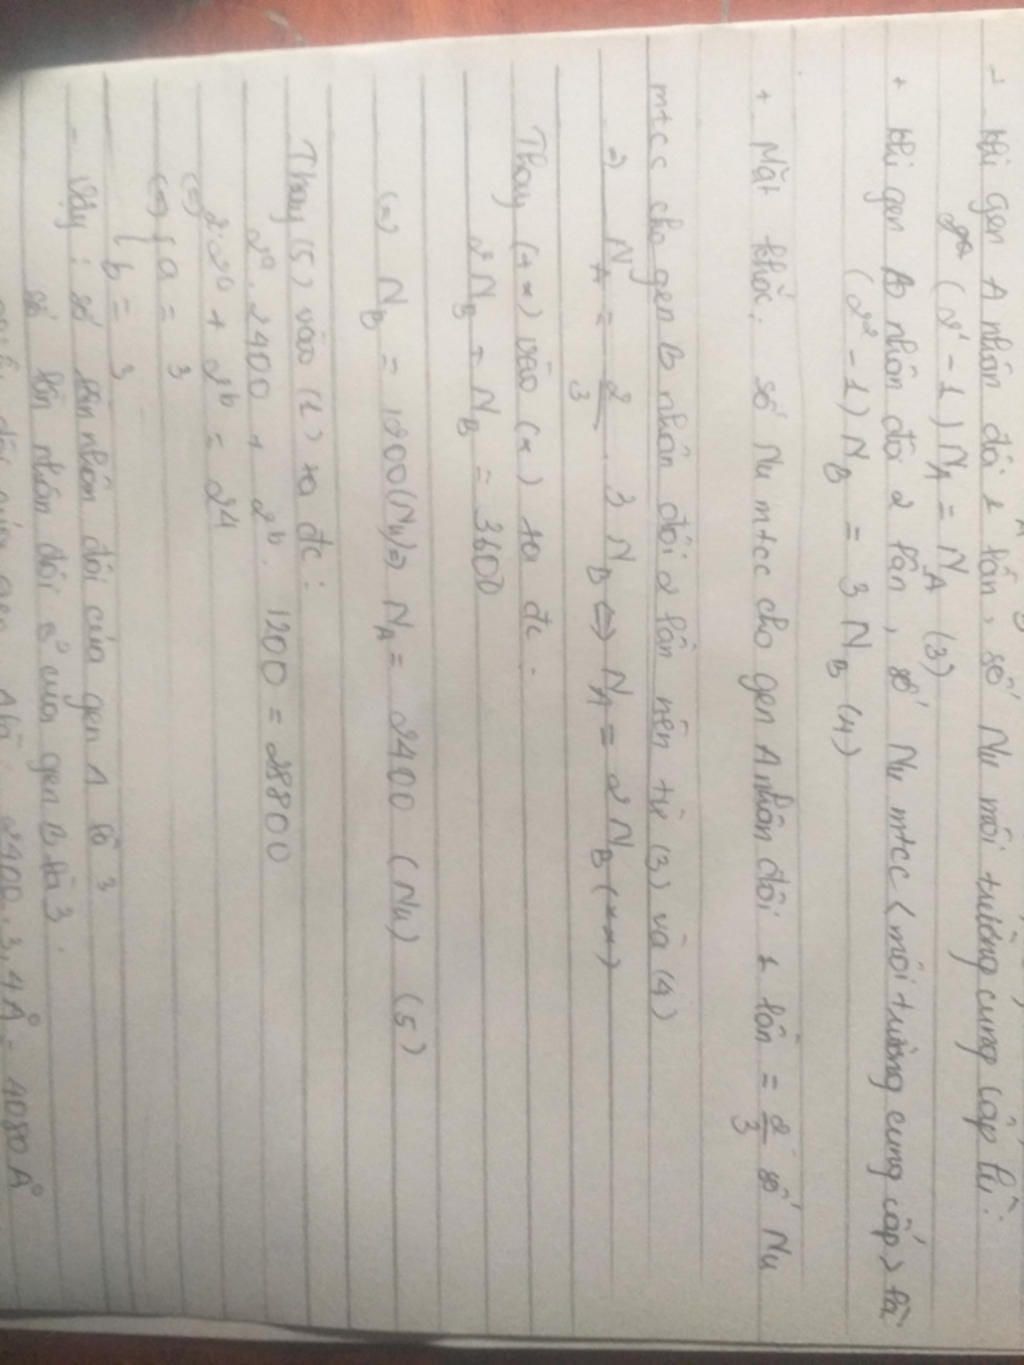 - Khi gen A nhân đôi 1 lần, số Nu môi trường cung cấp là:
(2¹ - 1) N_A = N_A (3)
+ Khi gen B nhân đôi 2 lần, số Nu mtcc (môi trường cung cấp) là
(2² - 1) N_B = 3 N_B (4)
+ Mặt khác, số Nu mtcc cho gen A nhân đôi 1 lần = 2/3 số Nu
mtcc cho gen B nhân đôi 2 lần nên từ (3) và (4)
=) N_A = 2/3 . 3 N_B <=> N_A = 2 N_B (**)
Thay (**) vào (*) ta đc:
2 N_B + N_B = 3600
(=) N_B = 1200 (Nu) => N_A = 2400 (Nu) (5)
Thay (5) vào (1) ta đc:
2^a . 2400 + 2^b . 1200 = 28800
(=) 2.2^a + 2^b = 24
(=) { a = 3
{ b = 3
- Vậy: số lần nhân đôi của gen A là 3
số lần nhân đôi của gen B là 3.
2400 . 3,4 A° = 4080 A°